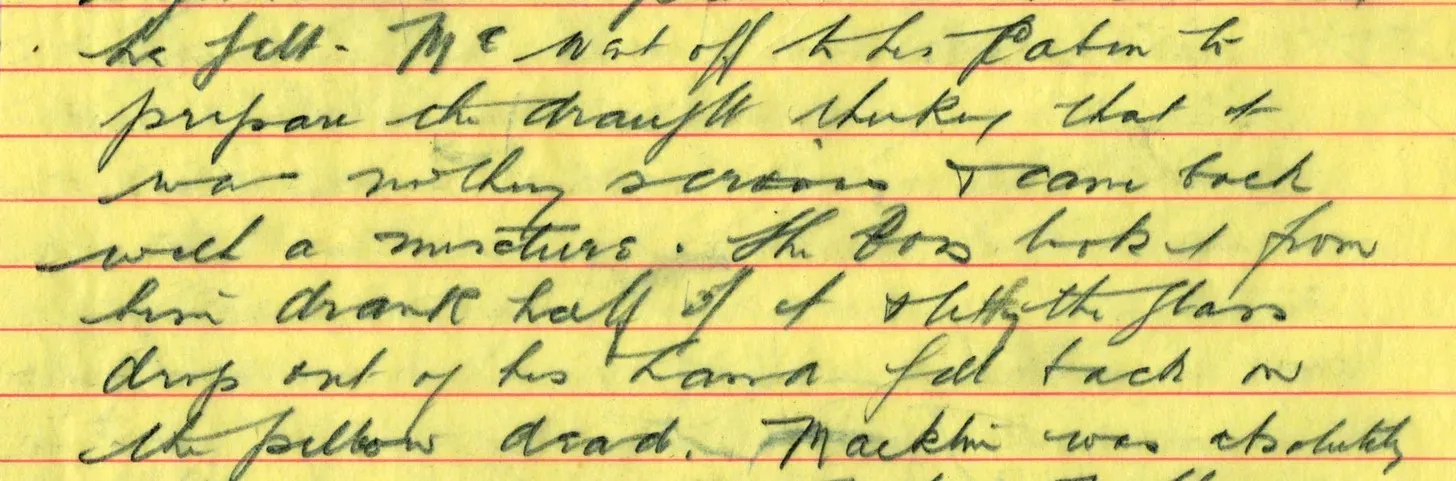 he felt - Mc went off to his Cabin to
prepare the draught thinking that it
was nothing serious & came back
with a mixture. The Boss took it from
him drank half of it & letting the glass
drop out of his hand fell back on
the pillow dead. Macklin was absolutely